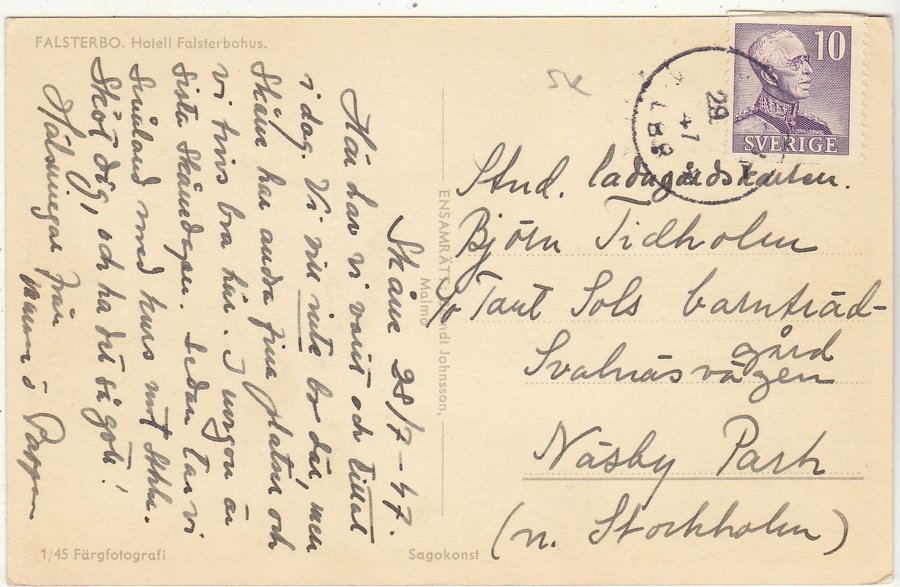 FALSTERBO. Hotell Falsterbohus.
Skåne 28/7-47.
Här har vi varit och tittat
i dag. Vi vill inte bo där, men
Skåne har andra fina platser och
vi trivs bra här. I morgon är
sista Skånedagen. Sedan tar vi
Småland med kurs mot Sthlm.
Sköt dig, och ha det så gott!
Hälsningar från
mamma o Pappa
ENSAMRÄTT: Johnsson,
Malmö
10
SVERIGE
29
7
47
Stud. ladugårdskarlen.
Björn Tidholm
c/o Tant Sols barnträd-
gård
Svalnäsvägen
Näsby Park
(n. Stockholm)
1/45 Färgfotografi
Sagokonst